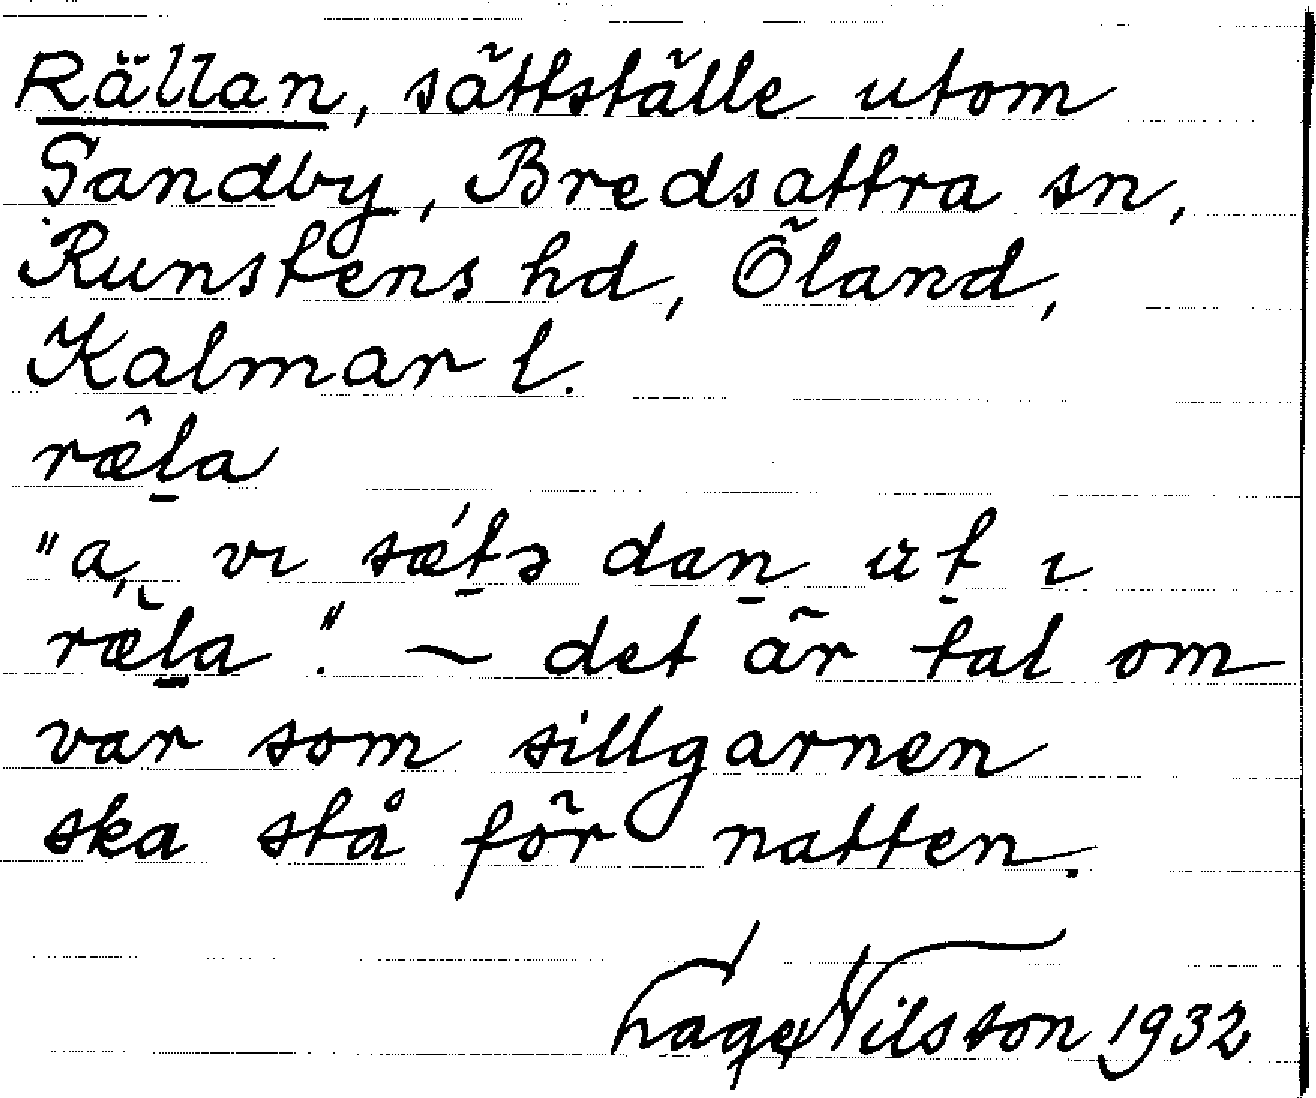 Rällan, sättställe utom
Sandby, Bredsättra sn,
Runstens hd, Öland,
Kalmar l.
ræ̂l̠a
"a, vı sǽt̠ə dan̠ ut̠ ı
ræ̂l̠a". ~ det är tal om
var som sillgarnen
ska stå för natten.
Tage Nilsson 1932